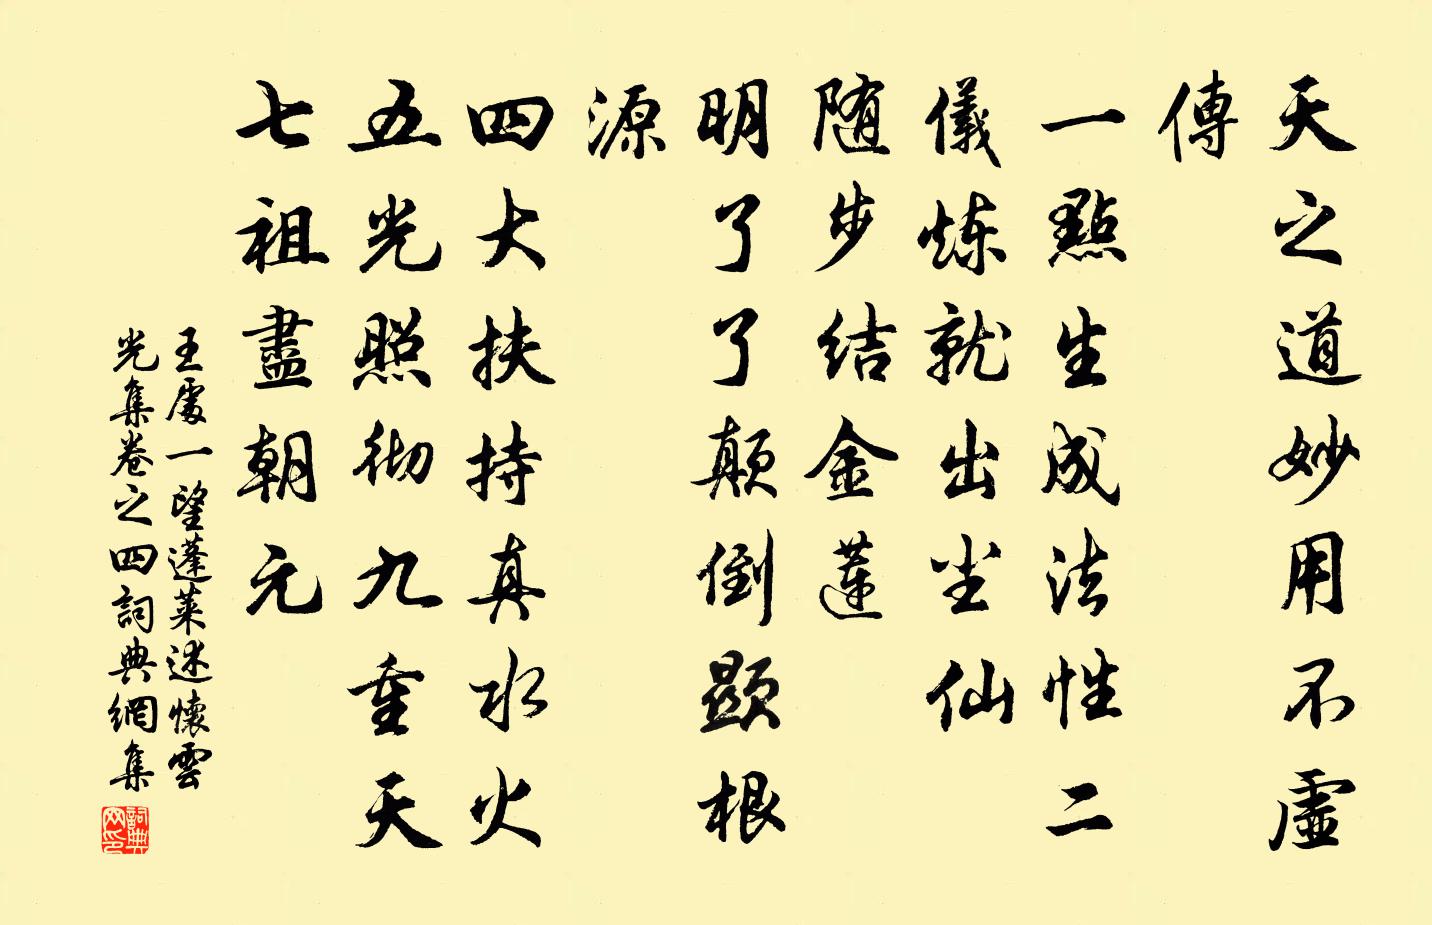 天之道妙用不虛
傳
一點生成法性二
儀炼就出坐仙
随步结金蓮
明了了颠倒显根
源
四大扶持真水火
五光照彻九重天
七祖盡朝元
王處一望蓬莱述懷雲
光集卷之四詞典網集
詞典
网印